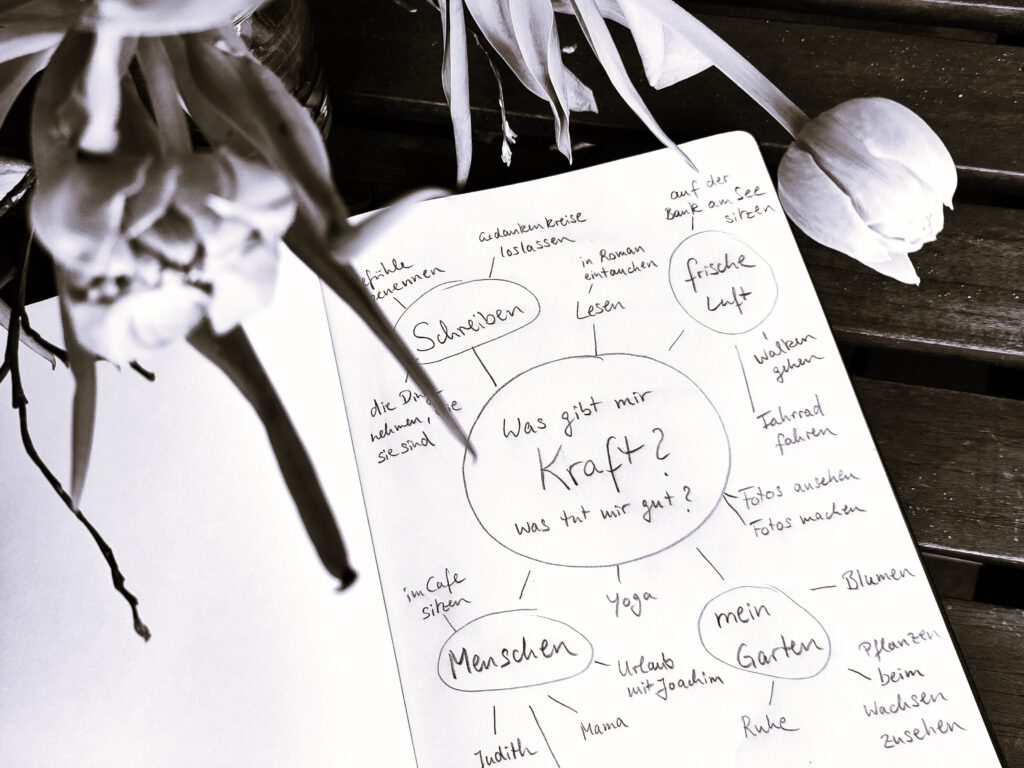 auf der
Bank am See
sitzen
Gedankenkreise
loslassen
in Roman
eintauchen
frische
Luft
Schreiben
Lesen
Walken
gehen
Fahrrad
fahren
die
nehmen,
sie sind
Was gibt mir
Kraft?
was tut mir gut?
Fotos ansehen
Fotos machen
im Cafe
sitzen
Yoga
Blumen
mein
Garten
Menschen
Urlaub
mit Joachim
Pflanzen
beim
Wachsen
zusehen
Mama
Ruhe
Judith